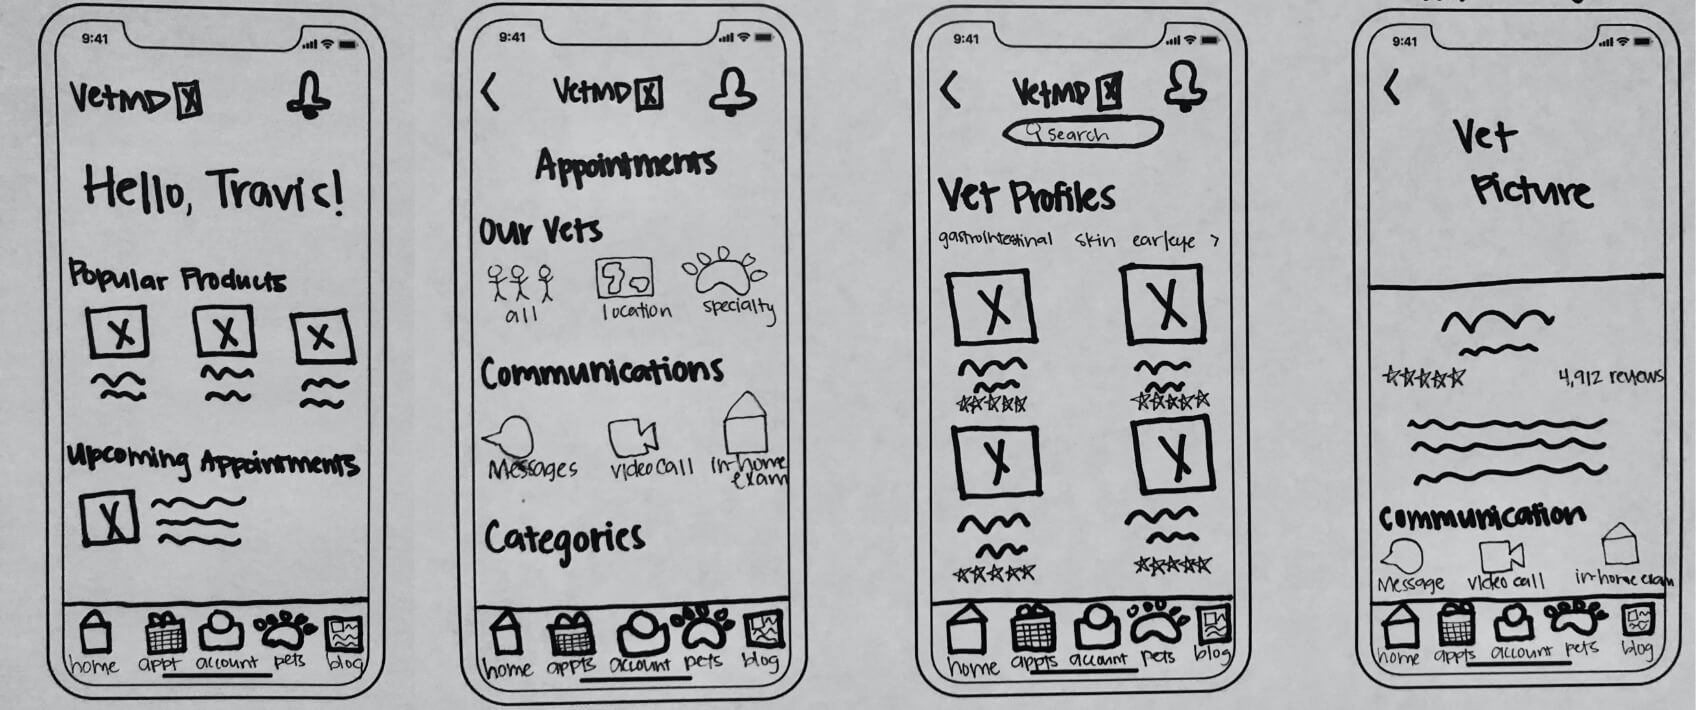 9:41
VetMD X
Hello, Travis!
Popular Products
X X X
Upcoming Appointments
X
home appt account pets blog
9:41
VetMD X
Appointments
Our Vets
all location specialty
Communications
Messages video call in-home exam
Categories
home appts account pets blog
9:41
VetMD X
search
Vet Profiles
gastrointestinal skin ear/eye >
X X
X X
home appts account pets blog
9:41
Vet
Picture
4,912 reviews
Communication
Message video call in-home exam
home appts account pets blog